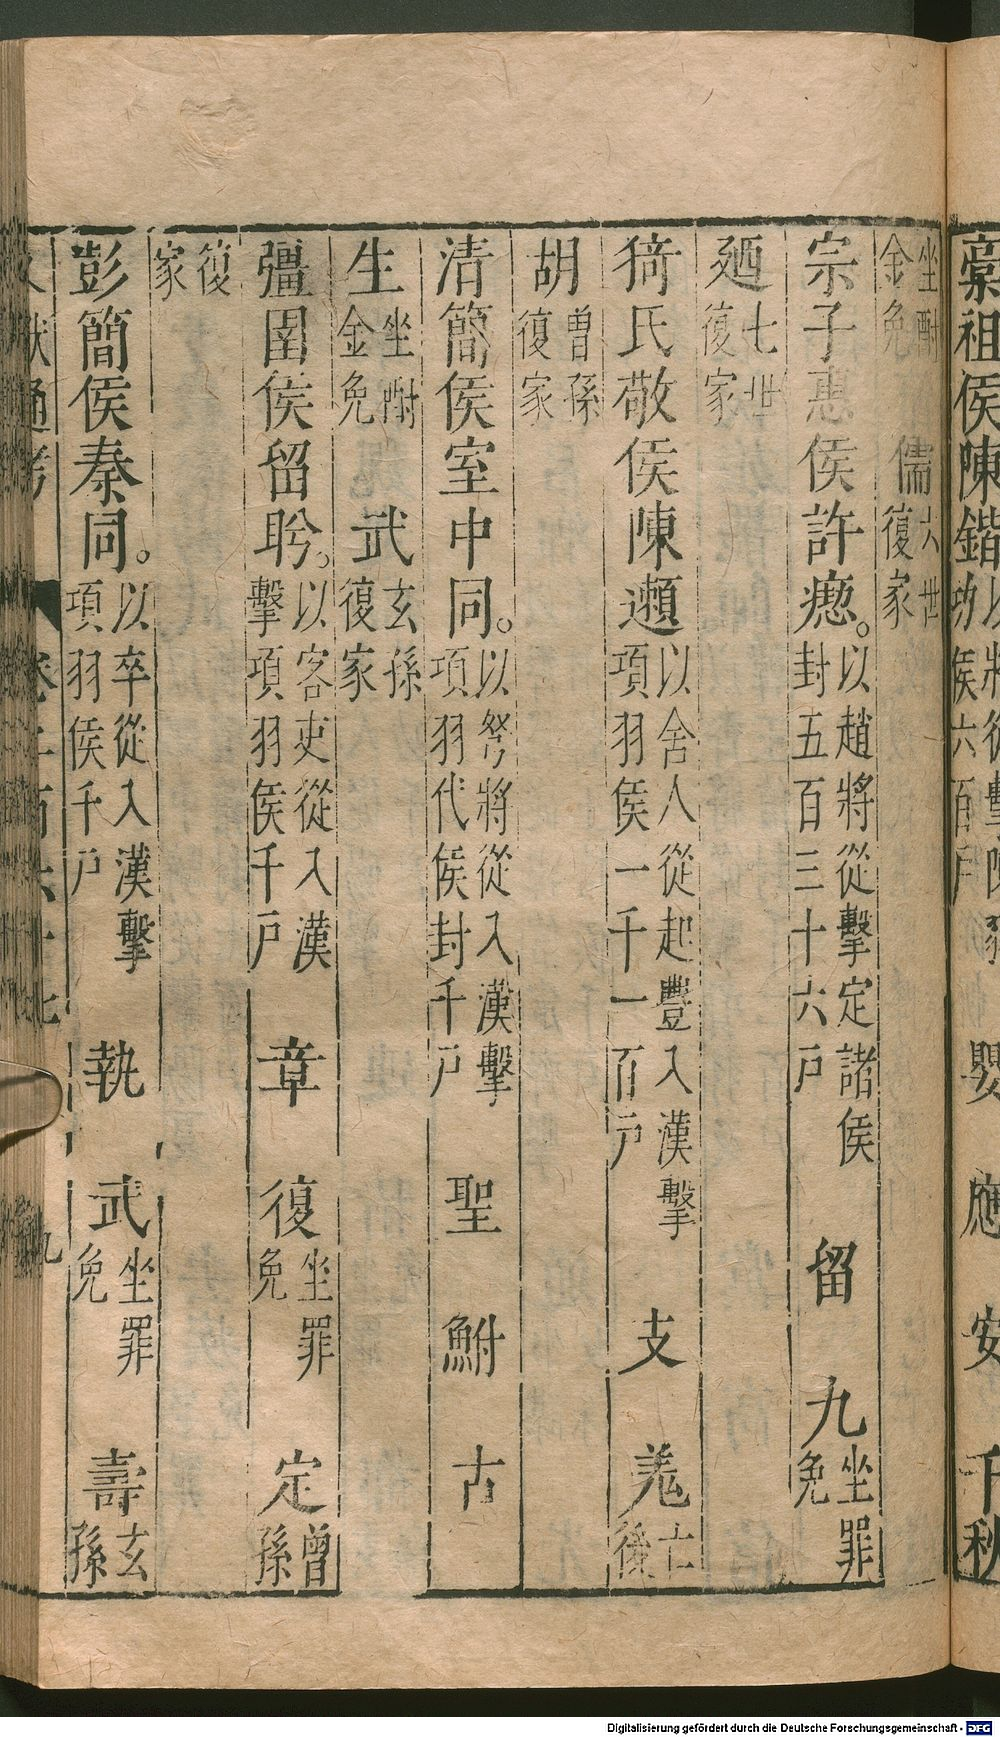 槀祖侯陳鍇以將從擊陳豨功侯六百戶 嬰 應 安 千秋
坐酎金免 儒六世復家
宗子惠侯許瘛以趙將從擊定諸侯封五百三十六戶 留 九坐罪免
廼七世復家
猗氏敬侯陳遬以舍人從起豐入漢擊項羽侯一千一百戶 支 羌亡後
胡曾孫復家
清簡侯室中同以弩將從入漢擊項羽代侯封千戶 聖 鮒 古
生坐酎金免 武玄孫復家
彊圉侯留盻以客吏從入漢擊項羽侯千戶 章 復坐罪免 定曾孫
復家
彭簡侯秦同以卒從入漢擊項羽侯千戶 執 武坐罪免 壽玄孫
文獻通考 卷二百六十七 九
Digitalisierung gefördert durch die Deutsche Forschungsgemeinschaft - DFG